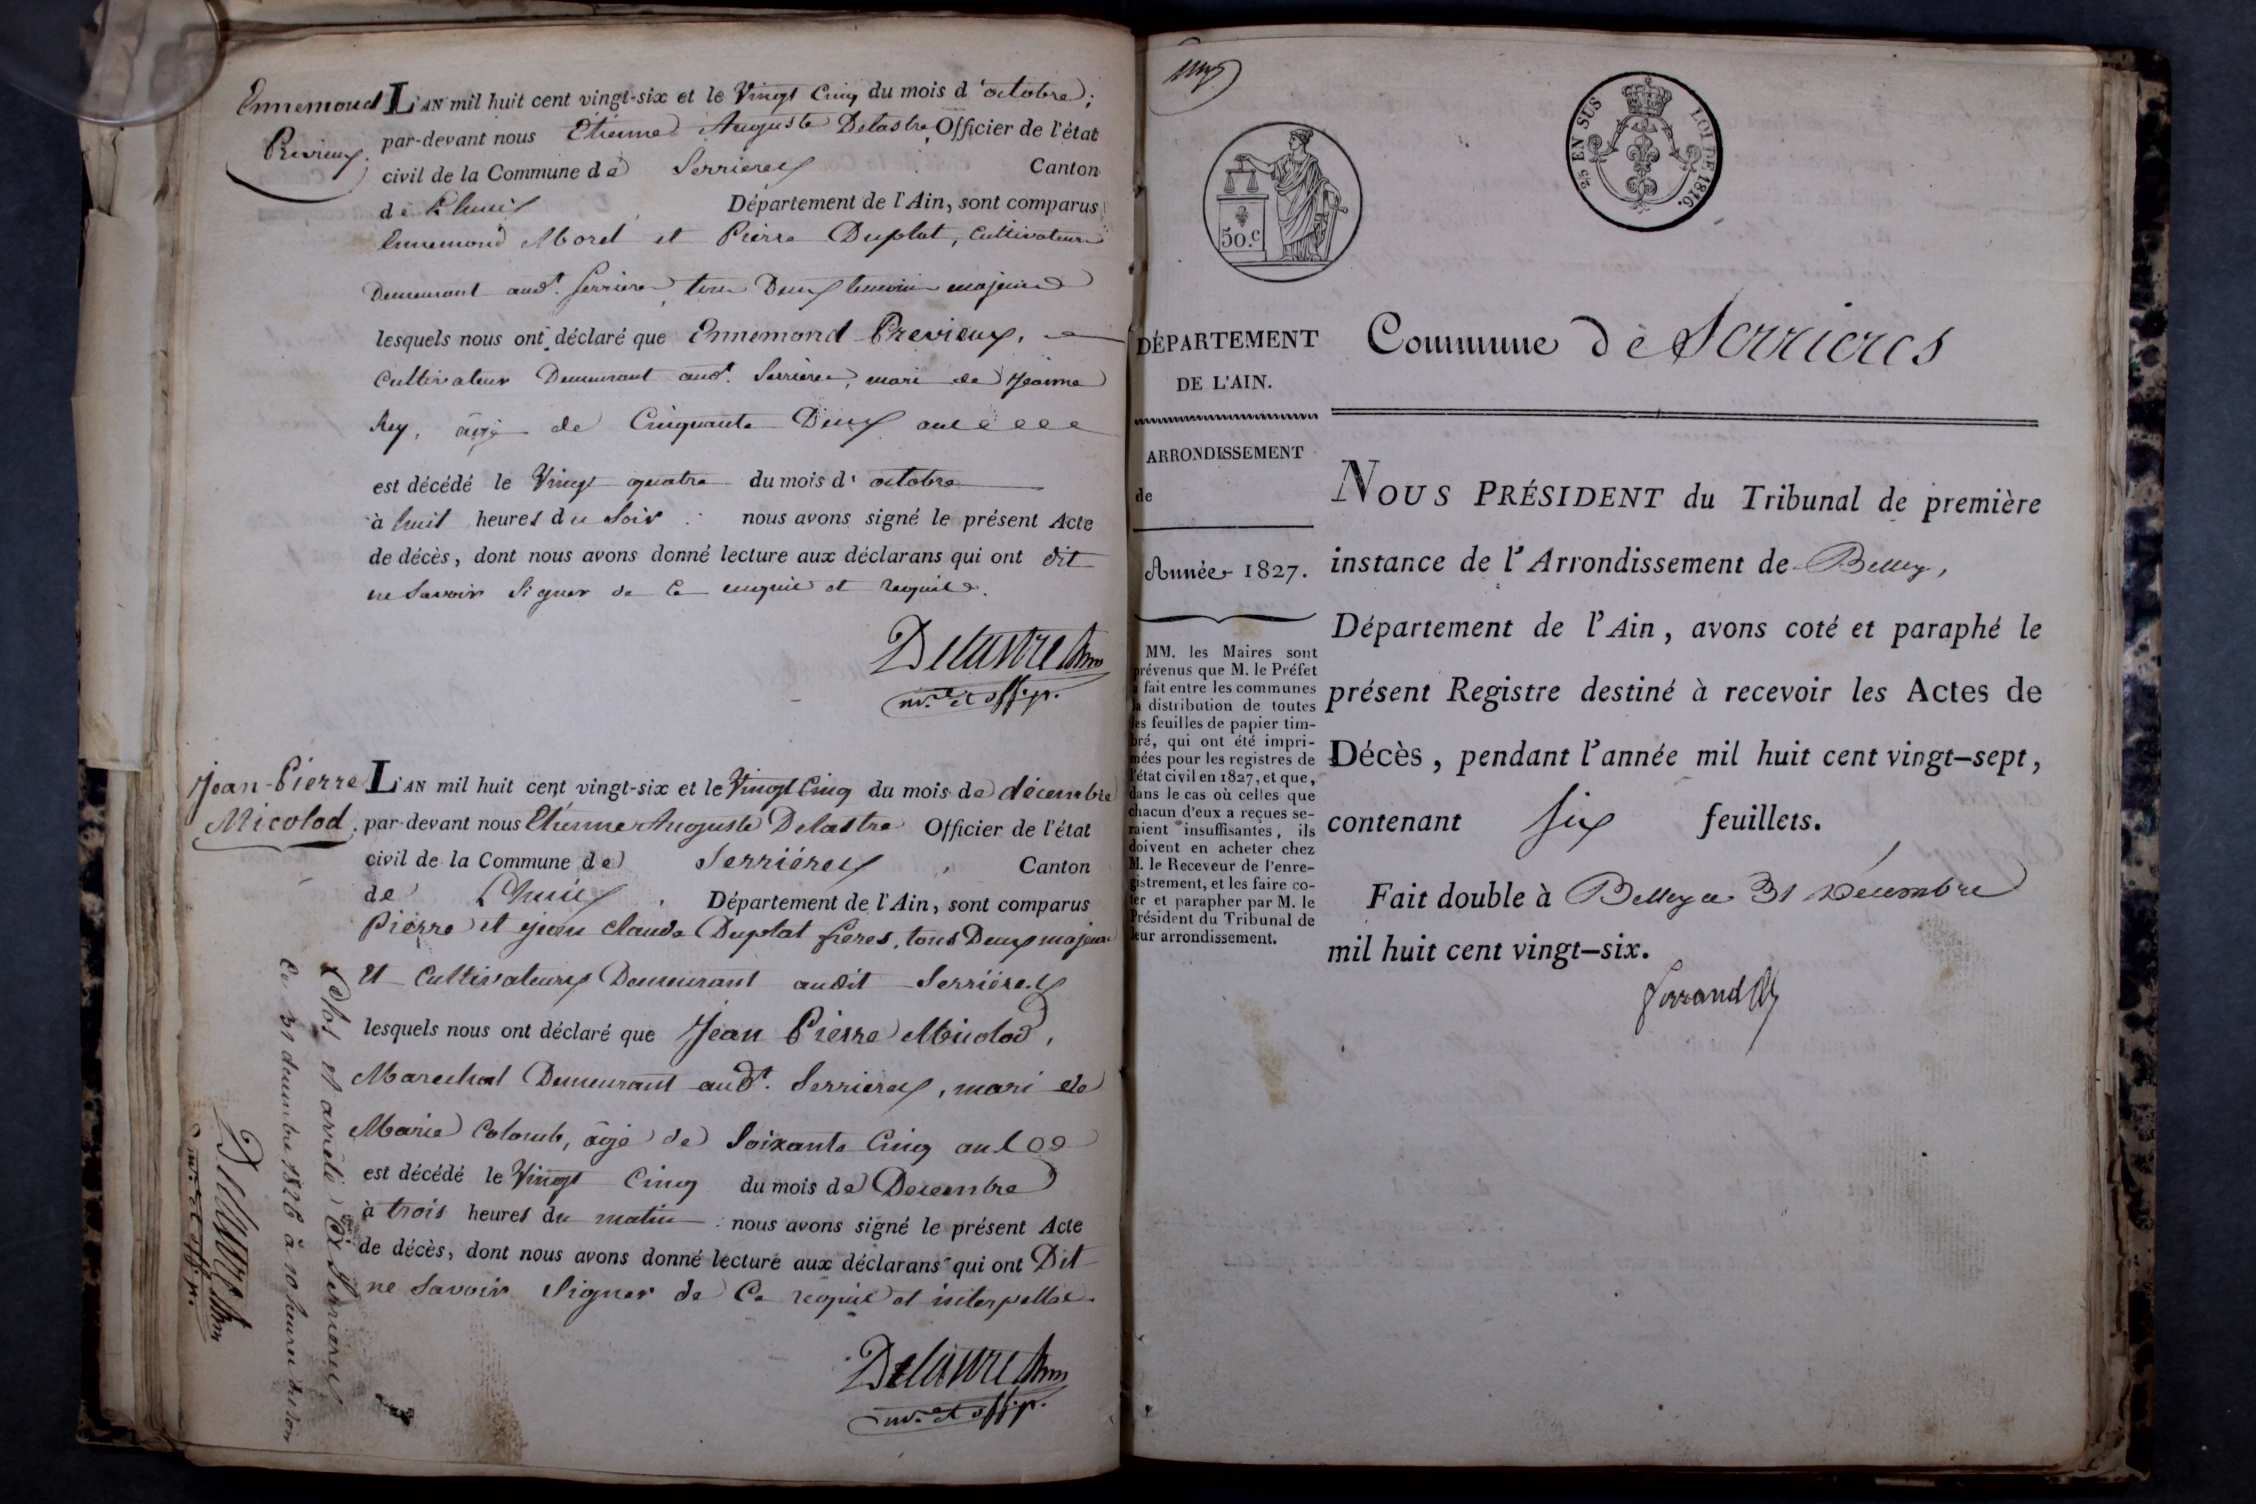 Ennemond
Previeux.
L'AN mil huit cent vingt-six et le Vingt Cinq du mois d'octobre;
par-devant nous Etienne Auguste Delastre, Officier de l'état
civil de la Commune de Serrieres Canton
de Lhuis Département de l'Ain, sont comparus
Ennemond Morel et Pierre Duplat, Cultivateurs
Demeurant audt. Serrieres, tous Deux temoins majeurs
lesquels nous ont déclaré que Ennemond Previeux,
Cultivateur Demeurant audt. Serrieres, mari de Jeanne
Rey, âgé de Cinquante Deux ans
est décédé le Vingt quatre du mois d'octobre
à huit heures du Soir nous avons signé le présent Acte
de décès, dont nous avons donné lecture aux déclarans qui ont dit
ne Savoir Signer de Ce enquis et requis.
Delastre
Jean-Pierre
Micolod.
L'AN mil huit cent vingt-six et le Vingt Cinq du mois de décembre
par-devant nous Etienne Auguste Delastre Officier de l'état
civil de la Commune de Serriéres, Canton
de Lhuis, Département de l'Ain, sont comparus
Pierre et jean claude Duplat freres, tous Deux majeurs
Et Cultivateurs Demeurant audit Serriéres
lesquels nous ont déclaré que Jean Pierre Micolod,
Marechal Demeurant audt. Serrieres, mari de
Marie Colomb, âgé de Soixante Cinq ans
est décédé le Vingt Cinq du mois de Decembre
à trois heures du matin nous avons signé le présent Acte
de décès, dont nous avons donné lecture aux déclarans qui ont Dit
ne Savoir Signer de Ce requis et interpellés.
Delastre
Clos et arrêté à Serrieres
Ce 31 decembre 1826 à 10 heures du soir
Delastre
50.c
25 EN SUS LOI DE 1816.
DÉPARTEMENT
DE L'AIN.
ARRONDISSEMENT
de
Année 1827.
MM. les Maires sont
prévenus que M. le Préfet
a fait entre les communes
la distribution de toutes
les feuilles de papier tim-
bré, qui ont été impri-
mées pour les registres de
l'état civil en 1827, et que,
dans le cas où celles que
chacun d'eux a reçues se-
raient insuffisantes, ils
doivent en acheter chez
M. le Receveur de l'enre-
gistrement, et les faire co-
ter et parapher par M. le
Président du Tribunal de
leur arrondissement.
Commune de Serrieres
NOUS PRÉSIDENT du Tribunal de première
instance de l'Arrondissement de Belley,
Département de l'Ain, avons coté et paraphé le
présent Registre destiné à recevoir les Actes de
Décès, pendant l'année mil huit cent vingt-sept,
contenant six feuillets.
Fait double à Belley ce 31 Décembre
mil huit cent vingt-six.